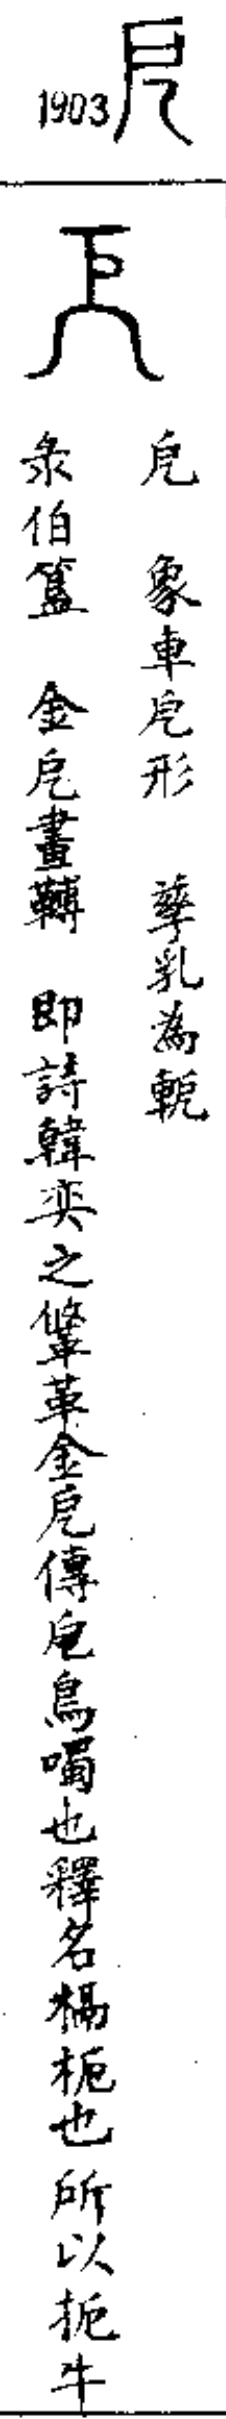 1903
戹 象車戹形 孳乳為軶
彔伯簋 金戹畫𩌏 即詩韓奕之鞗革金戹傳戹烏噣也釋名槅枙也所以扼牛